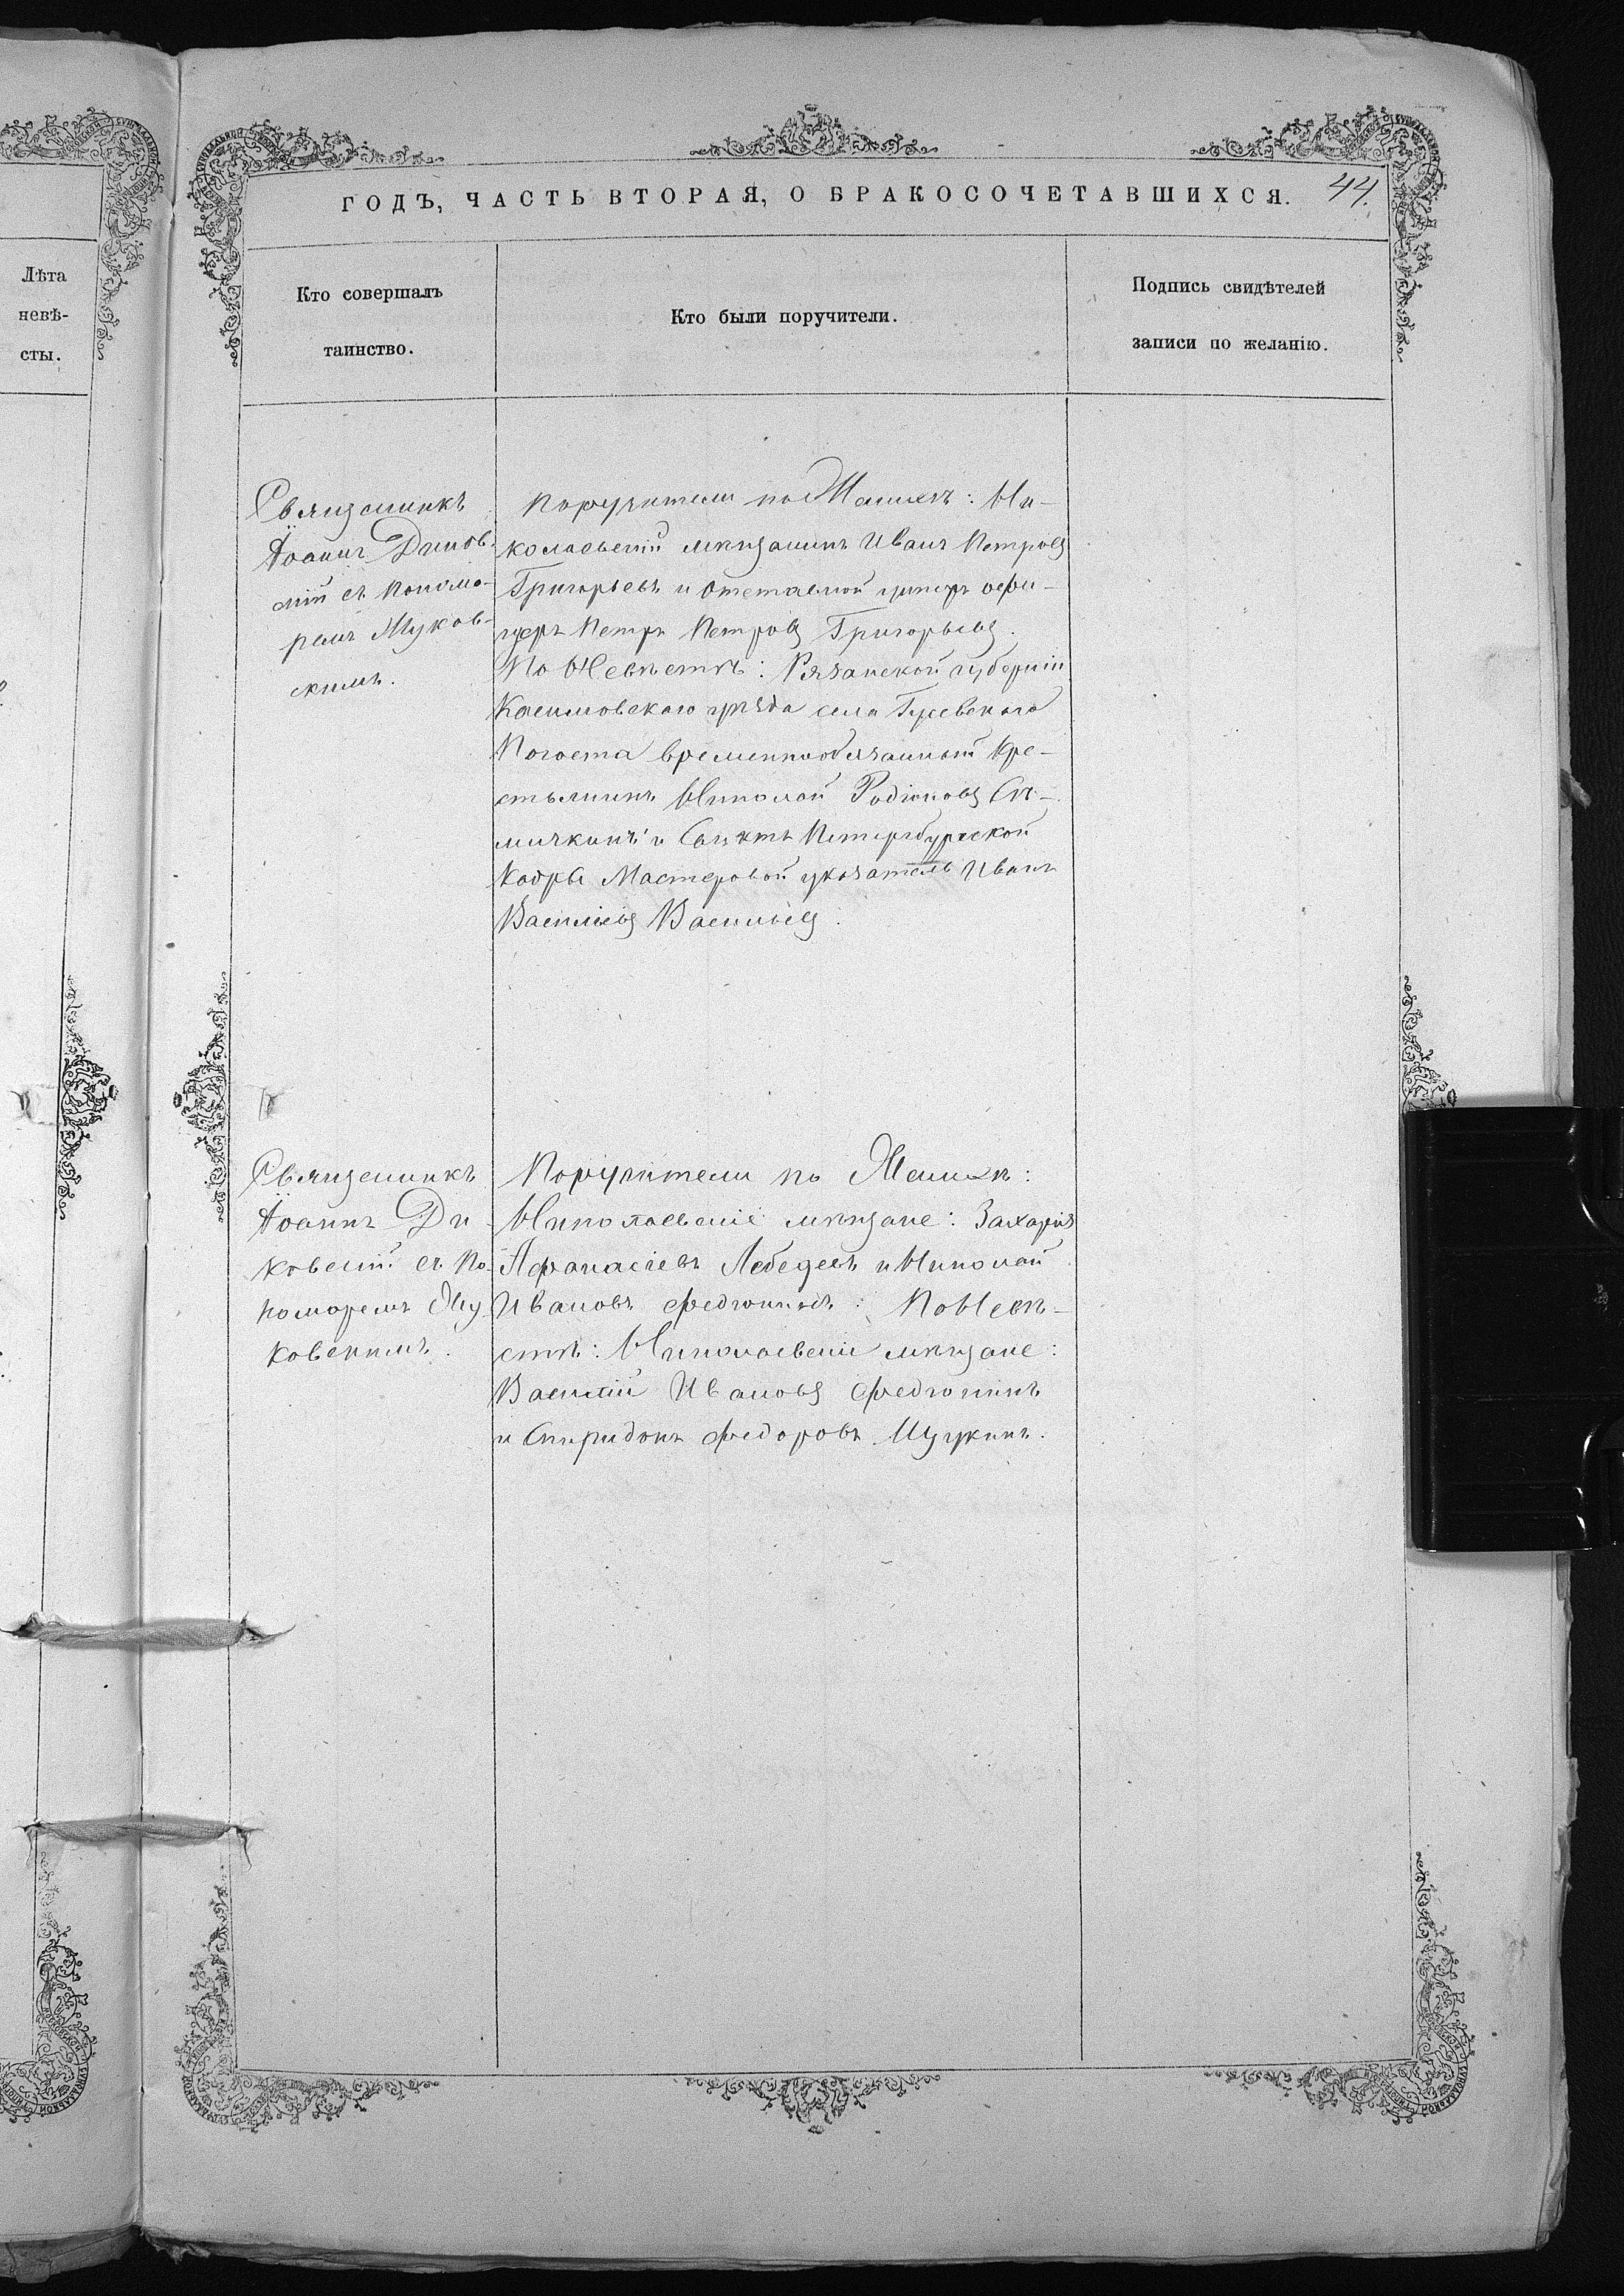 Лѣта
невѣ-
сты.
ГОДЪ, ЧАСТЬ ВТОРАЯ, О БРАКОСОЧЕТАВШИХСЯ. 44.
Кто совершалъ
таинство.
Кто были поручители.
Подпись свидѣтелей
записи по желанію.
Священникъ
Іоаннъ Диков-
скій съ понама-
ремъ Жуков-
скимъ.
Поручители по Женихѣ: Ни-
колаевскій мѣщанинъ Иванъ Петровъ
Григорьевъ и отставной унтеръ офи-
церъ Петръ Петровъ Григорьевъ.
По Невѣстѣ: Рязанской губерніи
Касимовскаго уѣзда села Гусевскаго
Погоста временнообязанный кре-
стьянинъ Николай Родіоновъ
и Санктъ Петербургской
Мастеровой указатель Иванъ
Васильевъ Васильевъ.
Священникъ
Іоаннъ Ди-
ковскій съ по-
номаремъ Жу-
ковскимъ.
Поручители по Женихѣ:
Николаевскіе мѣщане: Захарія
Афанасіевъ Лебедевъ и Николай
Ивановъ Федюнинъ: По Невѣ-
стѣ: Николаевскіе мѣщане:
Василій Ивановъ Федюнинъ
и Спиридонъ Федоровъ